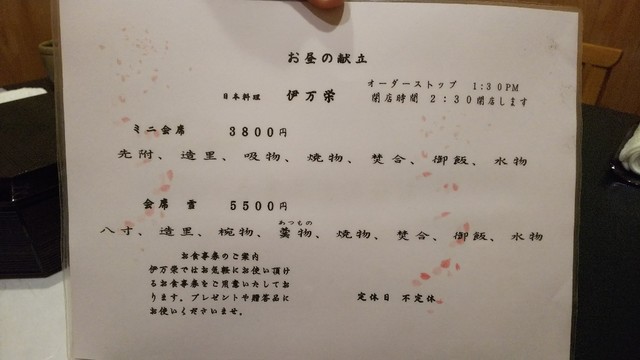 お昼の献立
オーダーストップ 1:30PM
日本料理 伊万栄 閉店時間 2:30閉店します
ミニ会席 3800円
先附、造里、吸物、焼物、焚合、御飯、水物
会席 雪 5500円
あつもの
八寸、造里、椀物、羹物、焼物、焚合、御飯、水物
お食事券のご案内
伊万栄ではお気軽にお使い頂け
るお食事券をご用意いたしてお
ります。プレゼントや贈答品に
お使いくださいませ。
定休日 不定休